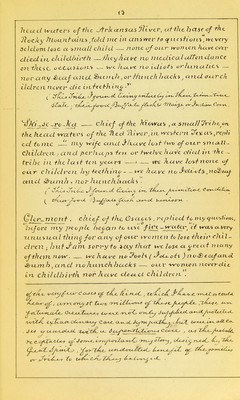 13
head waters of the Arkansas River, at the base of the
Rocky Mountains, told me in answer to questions, "we very
seldom lose a small child — none of our women have ever
died in childbirth — they have no medical attendants
on these occasions — we have no idiots or lunatics —
nor any Deaf and Dumb, or Hunchbacks, and our ch
ildren never die in teething."
This Tribe I found living entirely in their primitive
state, their food, Buffalo flesh & Maize or Indian Corn.
"Ski-se-ro-ka — chief of the Kiowas, a small Tribe, in
the head waters of the Red River, in western Texas, repli
ed to me — my wife and I have lost two of our small-
children, and perhaps ten or twelve have died in the
tribe in the last ten years — — we have lost none of
our children by teething — we have no Idiots, no Deaf
and Dumb, nor hunchbacks."
This Tribe I found living in their primitive condition
their food Buffalo flesh and venison.
Cler,mont, chief of the Osages, replied to my question,
"before my people began to use fire-water, it was a very
unusual thing for any of our women to lose their chil-
dren; but I am sorry to say that we lose a great many
of them now — we have no Fools (Idiots) no Deaf and
Dumb, and no hunchbacks — our women never die
in childbirth nor have dead children."
of the very few cases of the kind, which I have met or could
hear of, amongst two millions of these people, these un
fortunate creatures were not only supplied and protected
with extraordinary care and sympathy, but were in all ca
ses guarded with a superstitious care, as the probable
receptacles of some important mystery, designed by the
Great Spirit, for the undoubted benefit of the families
or Tribes to which they belonged.